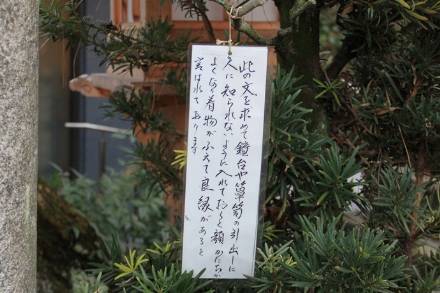 此の文を求めて鏡台や箪笥の引出しに
人に知られないように入れておくと顔かたちが
よくなり着物がふえて良縁があると
言はれてあります